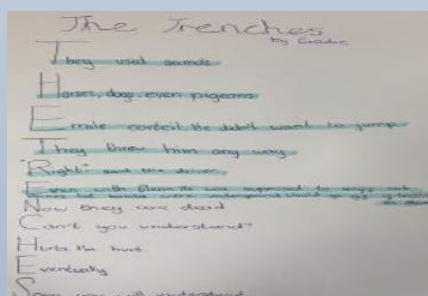 The Trenches
by
They used animals
Horses, dogs, even pigeons
Emile corteil. He didn't want to jump
They threw him any way
"Right" said the driver.
Even with He was supposed to
Now they are dead
Can't you understand?
Hurts the hurt.
Eventually
Soon you will understand